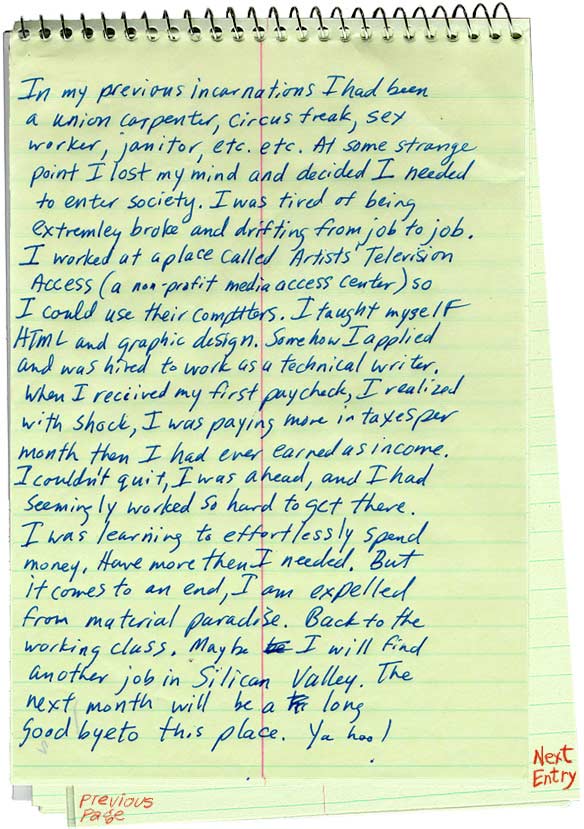 In my previous incarnations I had been
a union carpenter, circus freak, sex
worker, janitor, etc. etc. At some strange
point I lost my mind and decided I needed
to enter society. I was tired of being
extremley broke and drifting from job to job.
I worked at a place called Artists' Television
Access (a non-profit media access center) so
I could use their computters. I taught myself
HTML and graphic design. Somehow I applied
and was hired to work as a technical writer.
When I recived my first paycheck, I realized
with shock, I was paying more in taxes per
month then I had ever earned as income.
I couldn't quit, I was ahead, and I had
seemingly worked so hard to get there.
I was learning to effortlessly spend
money. Have more then I needed. But
it comes to an end, I am expelled
from material paradise. Back to the
working class. Maybe I will find
another job in Silican Valley. The
next month will be a long
goodbye to this place. Ya hoo!
Next
Entry
Previous
Page